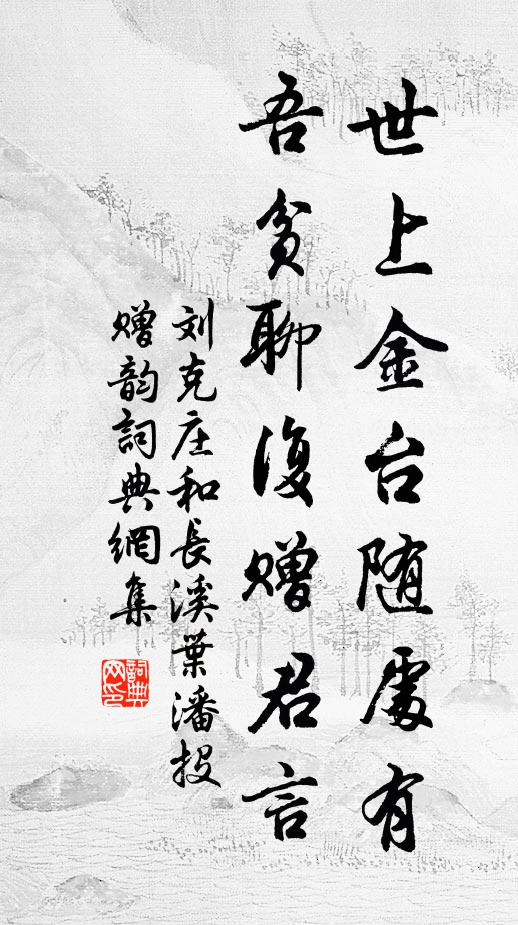 世上金台随處有
吾贫聊復赠君言
刘克庄和長溪葉潘投
赠韵詞典網集
詞典
网印